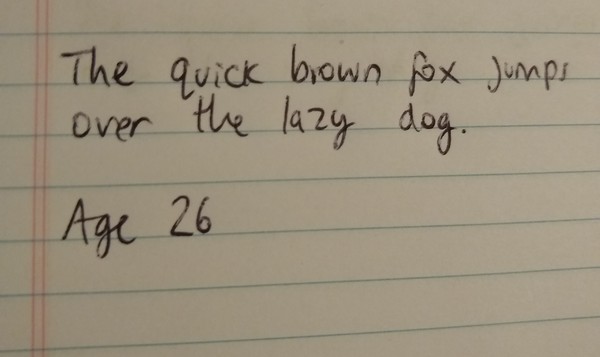 The quick brown fox jumps
over the lazy dog.
Age 26